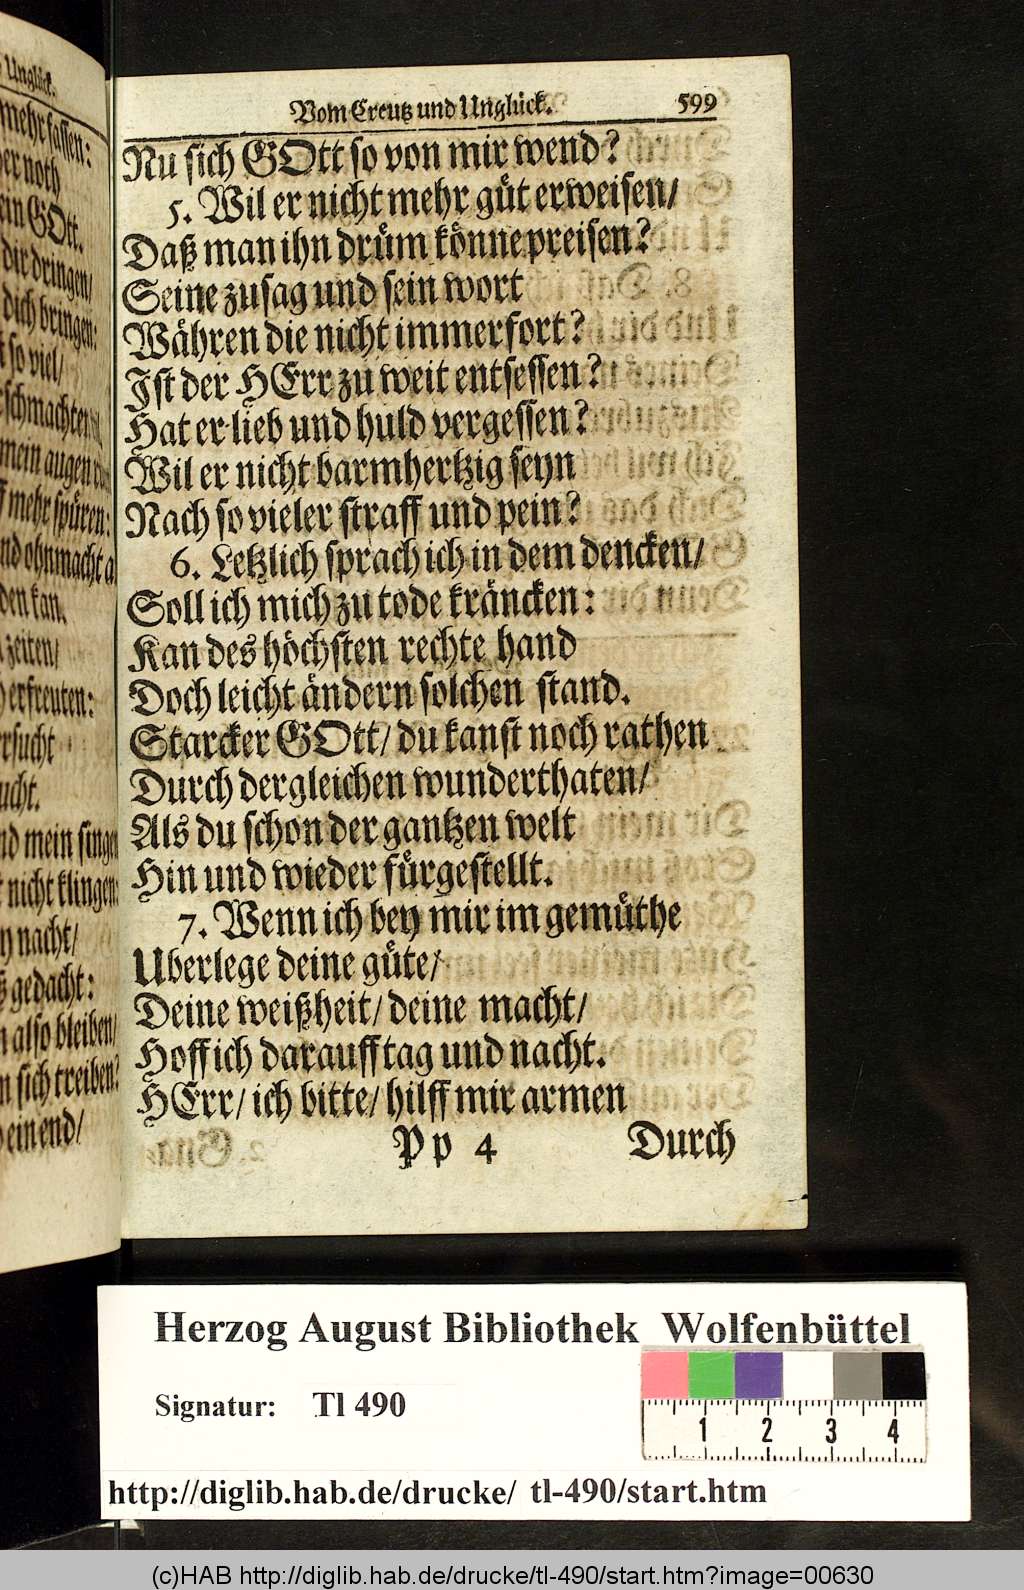 Unglück.
mehr fassen:
er noth
ein GOtt.
dir dringen/
dich bringen:
so viel/
mein augen
mehr spüren:
nd ohnmacht
den kan.
zeiten/
erfreuten:
nd mein singen
nicht klingen:
nacht/
gedacht:
also bleiben/
sich treiben?
ein end/
Vom Creutz und Unglück. 599
Nu sich GOtt so von mir wend?
5. Wil er nicht mehr güt erweisen/
Daß man ihn drüm könne preisen?
Seine zusag und sein wort
Währen die nicht immerfort?
Ist der HErr zu weit entsessen?
Hat er lieb und huld vergessen?
Wil er nicht barmhertzig seyn
Nach so vieler straff und pein?
6. Letzlich sprach ich in dem dencken/
Soll ich mich zu tode kräncken:
Kan des höchsten rechte hand
Doch leicht ändern solchen stand.
Starcker GOtt/ du kanst noch rathen
Durch dergleichen wunderthaten/
Als du schon der gantzen welt
Hin und wieder fürgestellt.
7. Wenn ich bey mir im gemüthe
Uberlege deine güte/
Deine weißheit/ deine macht/
Hoff ich darauff tag und nacht.
HErr/ ich bitte/ hilff mir armen
Pp 4 Durch
Herzog August Bibliothek Wolfenbüttel
Signatur: Tl 490
1 2 3 4
http://diglib.hab.de/drucke/ tl-490/start.htm
(c)HAB http://diglib.hab.de/drucke/tl-490/start.htm?image=00630